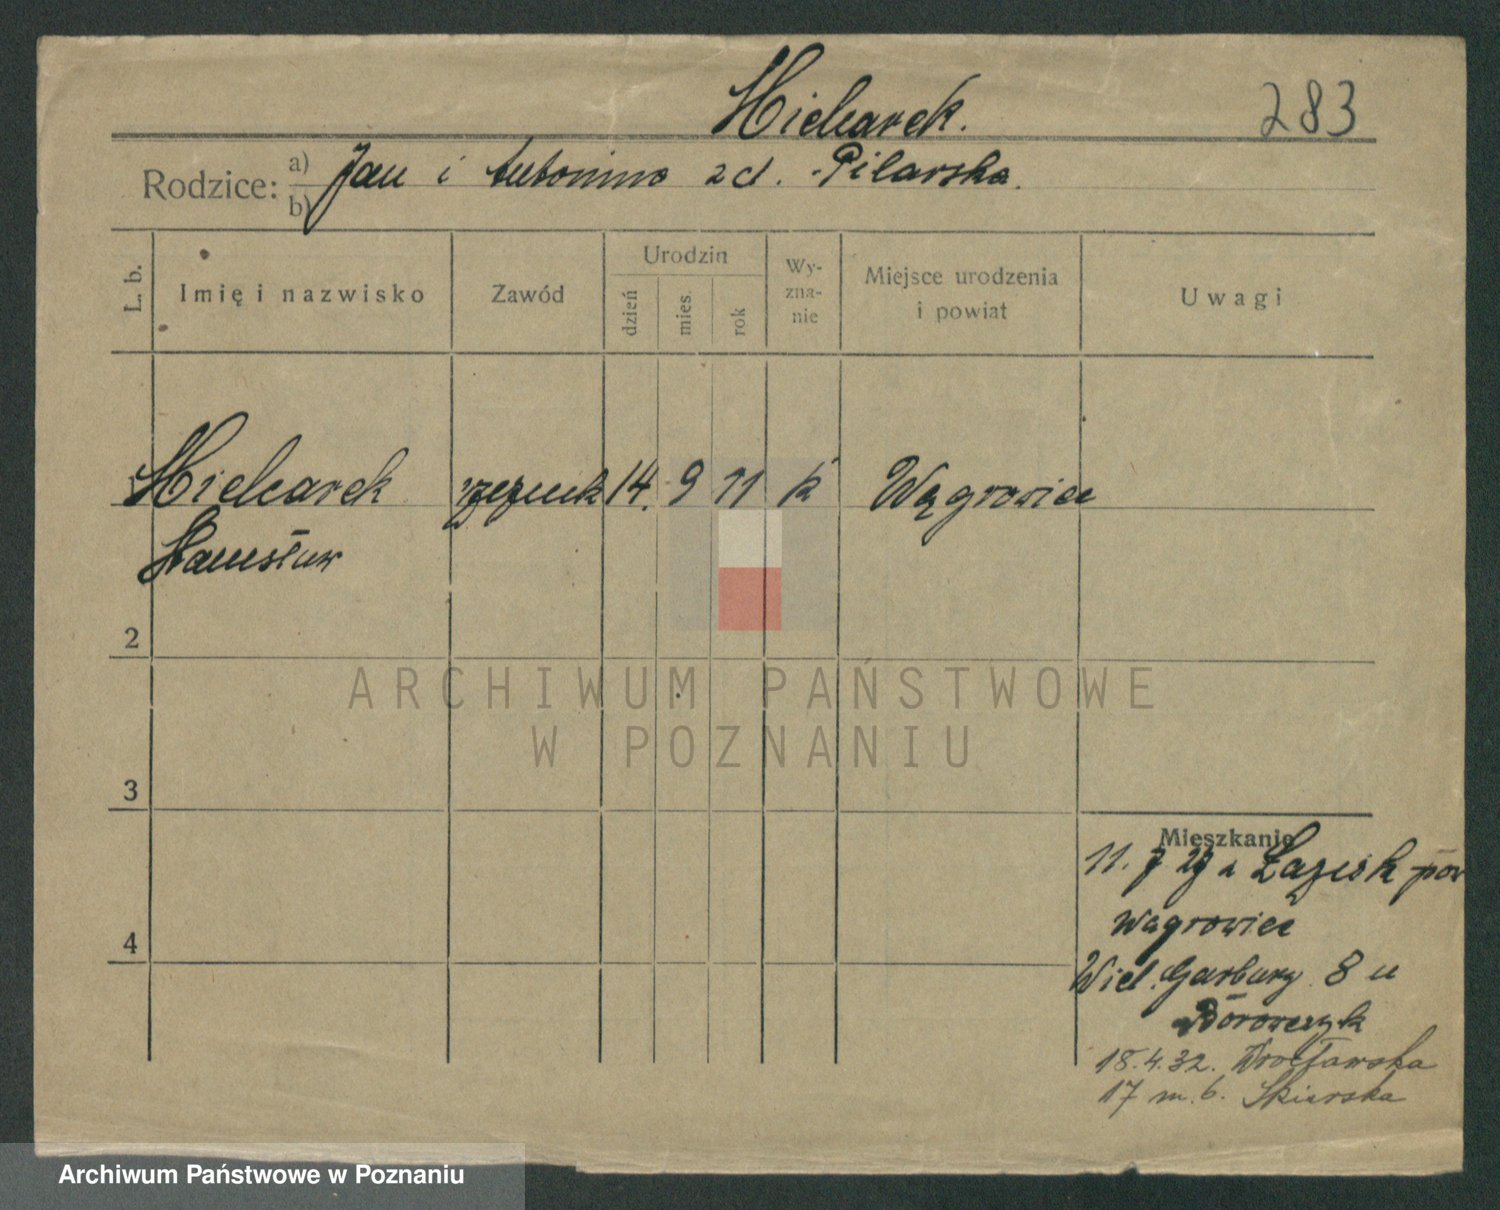 Mielcarek.
283
Rodzice: a) Jan i Antonina z d. Pilarska.
b)
L. b.
Imię i nazwisko
Zawód
Urodzin
dzień
mies.
rok
Wy-
zna-
nie
Miejsce urodzenia
i powiat
Uwagi
1 Mielcarek rzeźnik 14. 9 11 k Wągrowiec
Stanisław
2
ARCHIWUM PAŃSTWOWE
W POZNANIU
3
Mieszkanie
11. 7 27 z Łazisk pow
Wągrowiec
4
Wiel. Garbary 8 u
Borowczyk
18.4.32. Wrocławska
17 m. 6. Skierska
Archiwum Państwowe w Poznaniu